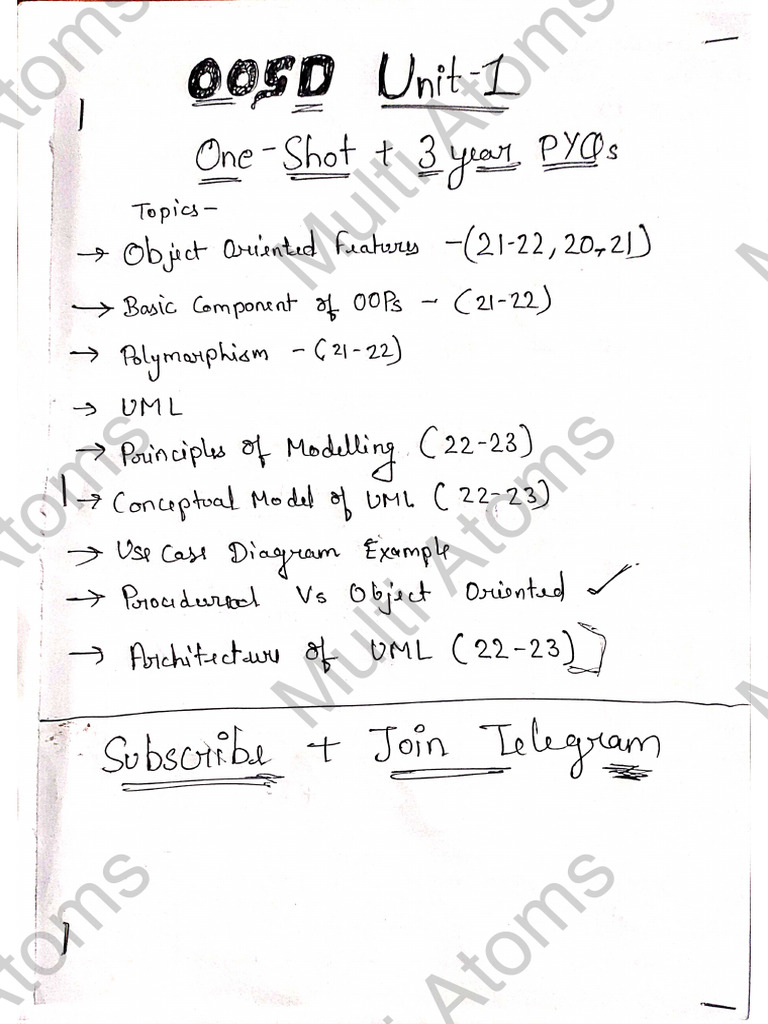 OOSD Unit-1
One-Shot + 3 year PYQs
Topics-
→ Object Oriented Features -(21-22, 20-21)
→ Basic Component of OOPs - (21-22)
→ Polymorphism - (21-22)
→ UML
→ Principles of Modelling (22-23)
→ Conceptual Model of UML (22-23)
→ Use Case Diagram Example
→ Procedural Vs Object Oriented ✓
→ Architecture of UML (22-23)]
Subscribe + Join Telegram
Multi Atoms